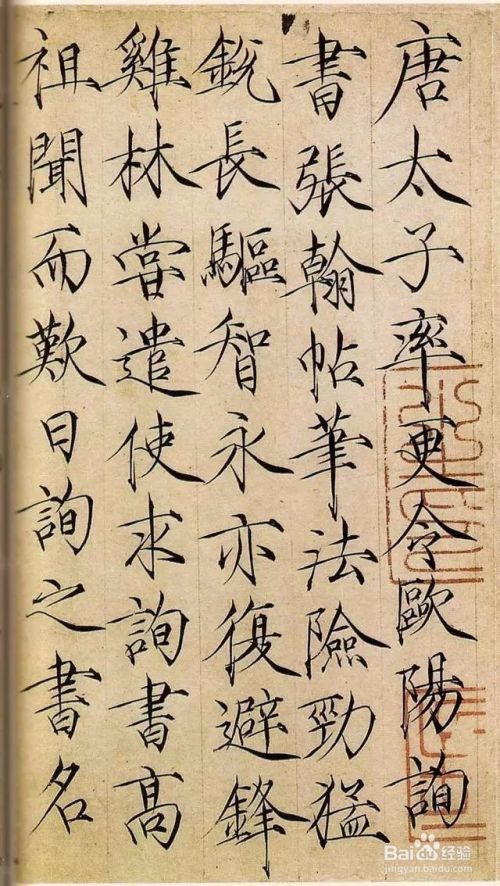 唐太子率更令歐陽詢
書張翰帖筆法險勁猛
銳長驅智永亦復避鋒
雞林嘗遣使求詢書高
祖聞而歎曰詢之書名
Baidu经验
jingyan.baidu.com